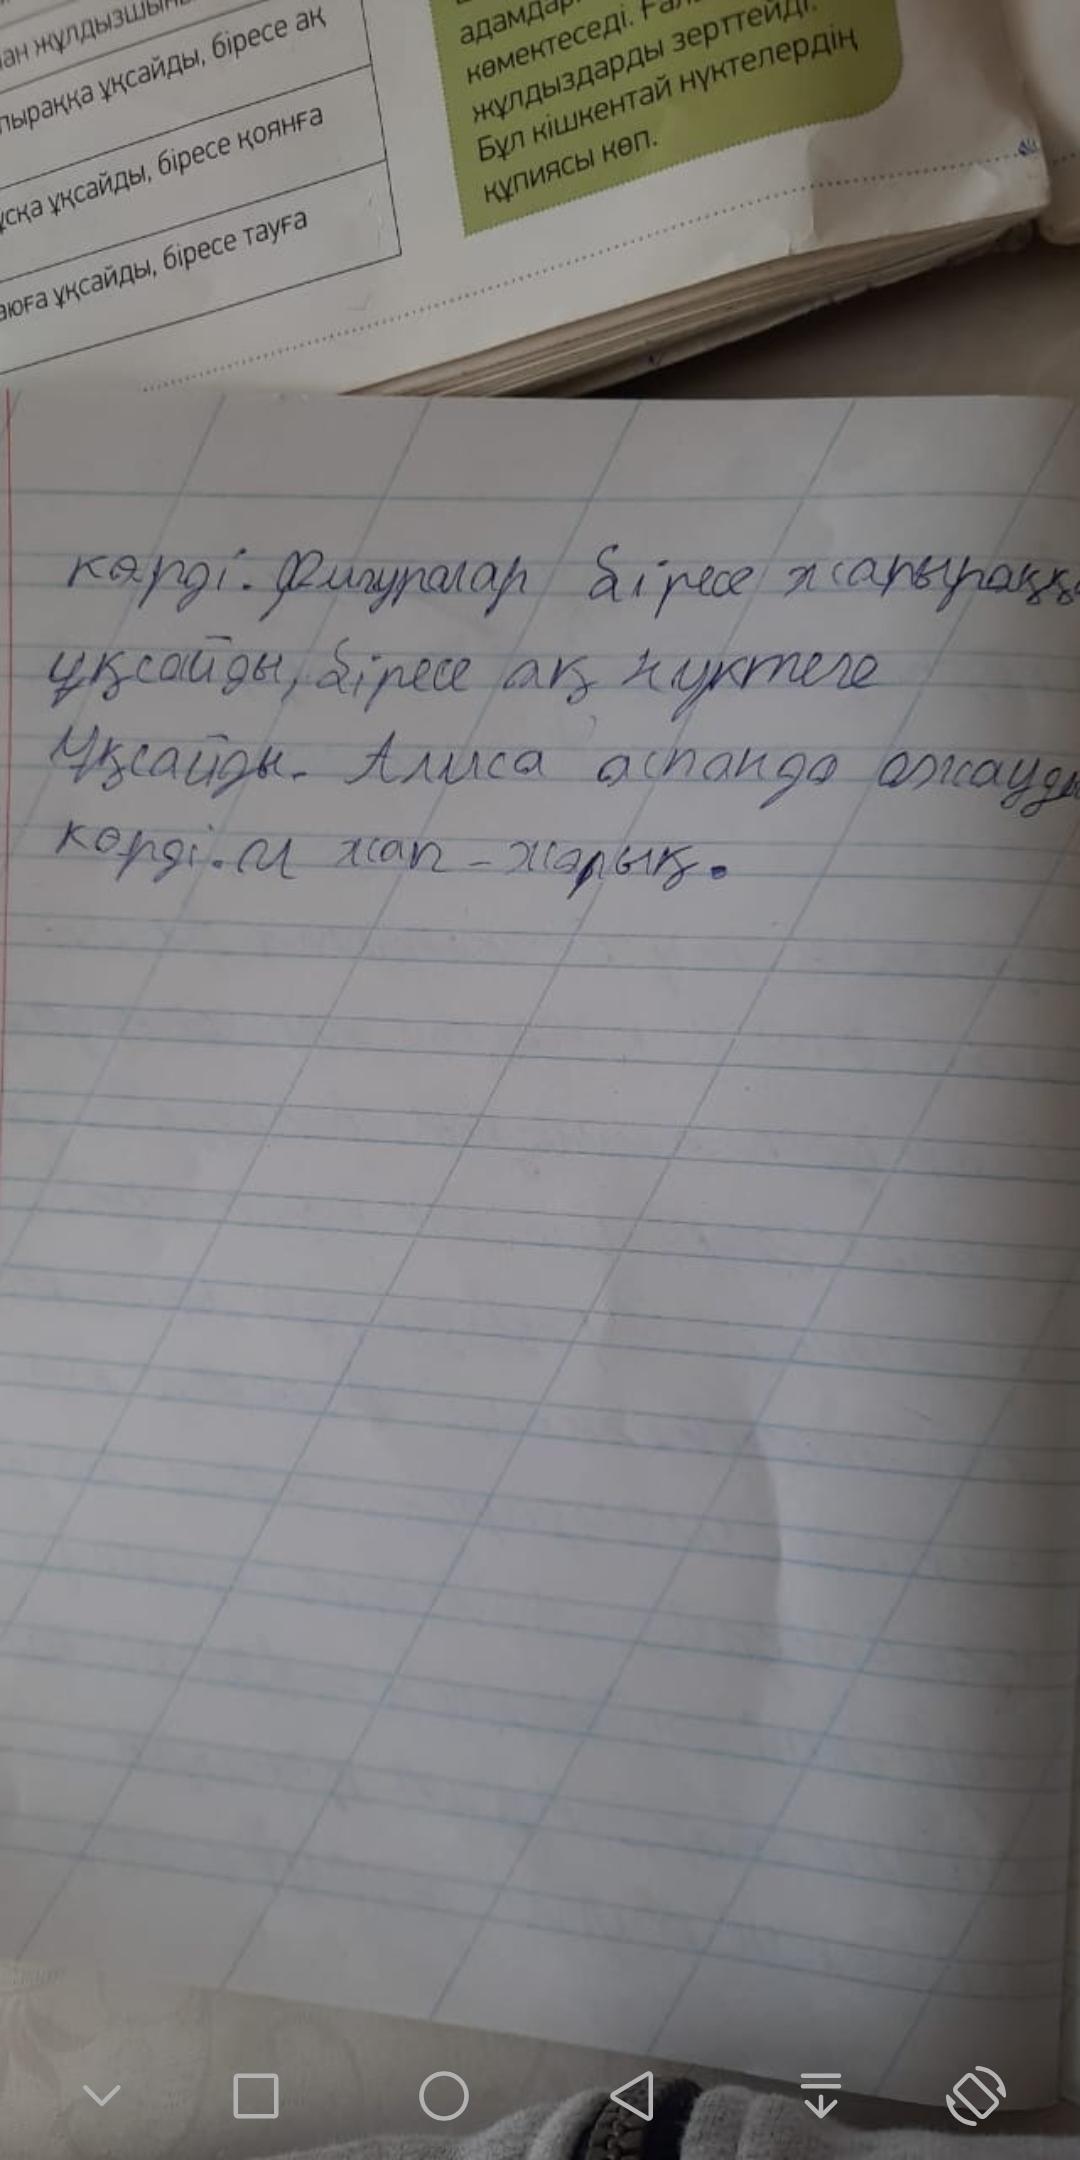 ан жұлдызшын
пыраққа ұқсайды, біресе ақ
ұсқа ұқсайды, біресе қоянға
аюға ұқсайды, біресе тауға
адамдар
көмектеседі. Ғал
жұлдыздарды зерттейді.
Бұл кішкентай нүктелердің
құпиясы көп.
көрді. Фигуралар біресе жарыраққа
ұқсайды, біресе ақ нүктеге
Ұқсайды. Алиса аспанда ожауды
көрді. Ол жап-жарық.